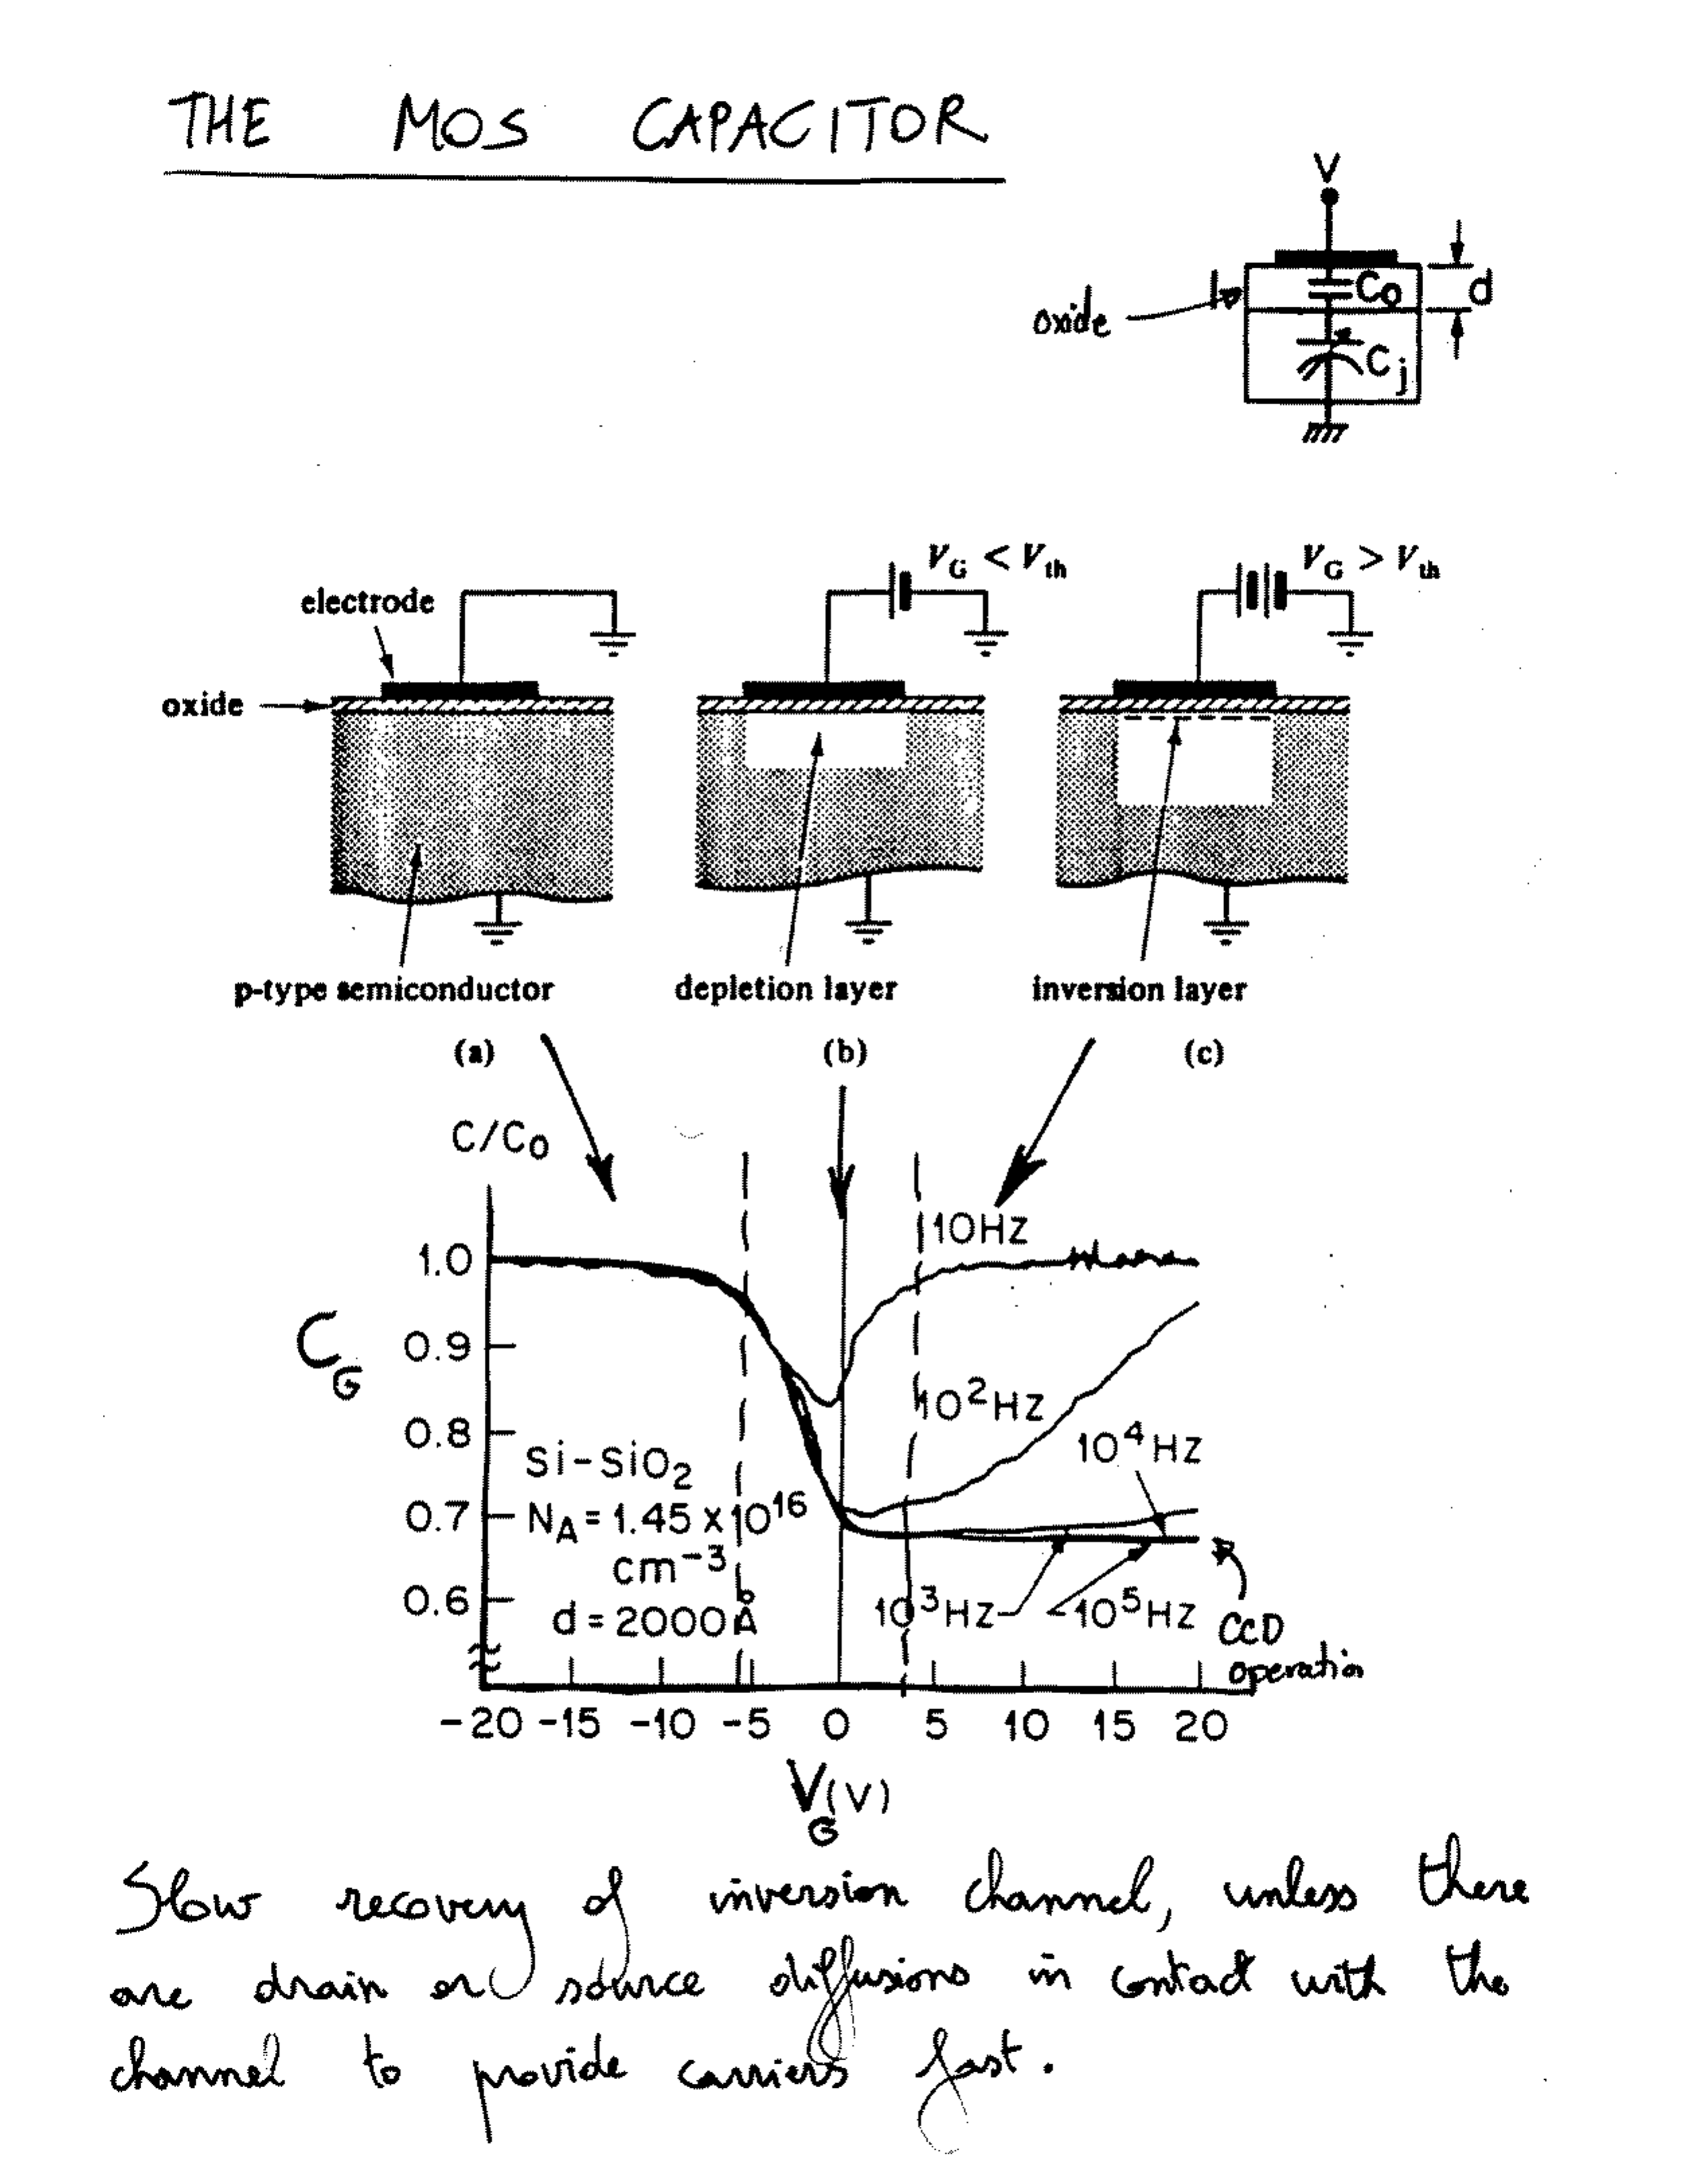 THE MOS CAPACITOR
V
oxide
C₀
d
Cj
V_G < V_th
V_G > V_th
electrode
oxide
p-type semiconductor
depletion layer
inversion layer
(a)
(b)
(c)
C/C₀
10Hz
1.0
C_G
0.9
10²Hz
0.8
10⁴Hz
Si-SiO₂
0.7
N_A = 1.45 x 10¹⁶
cm⁻³
0.6
d = 2000Å
10³Hz
10⁵Hz
CCD
operation
-20 -15 -10 -5 0 5 10 15 20
V_G (V)
Slow recovery of inversion channel, unless there
are drain or source diffusions in contact with the
channel to provide carriers fast.